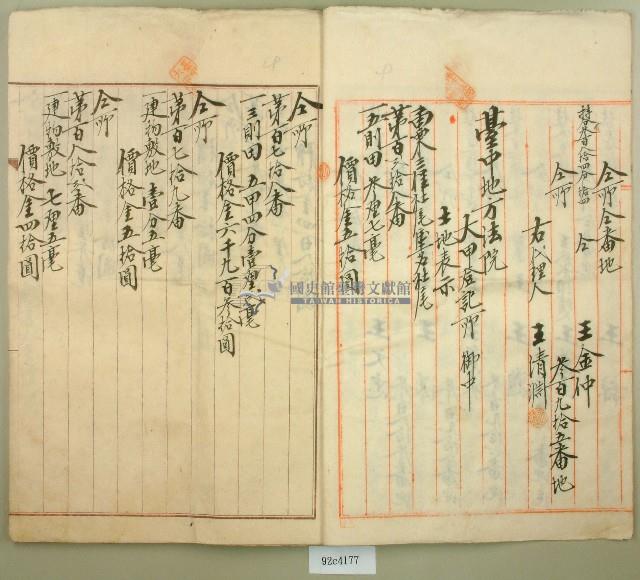 仝所仝番地
仝 王金仲
仝所 參百九拾五番地
右代理人 王清淵
臺中地方法院
大甲登記所 御中
土地表示
第百六拾番
五則田 參厘七毫
價格金五拾圓
仝所
第百七拾八番
三則田 五甲四分壹厘 毫
價格金六千九百參拾圓
仝所
第百七拾九番
建物敷地 壹分五毫
價格金五拾圓
仝所
第百八拾 番
建物敷地 七厘五毫
價格金四拾圓
國史館臺灣文獻館
TAIWAN HISTORICA
92c4177